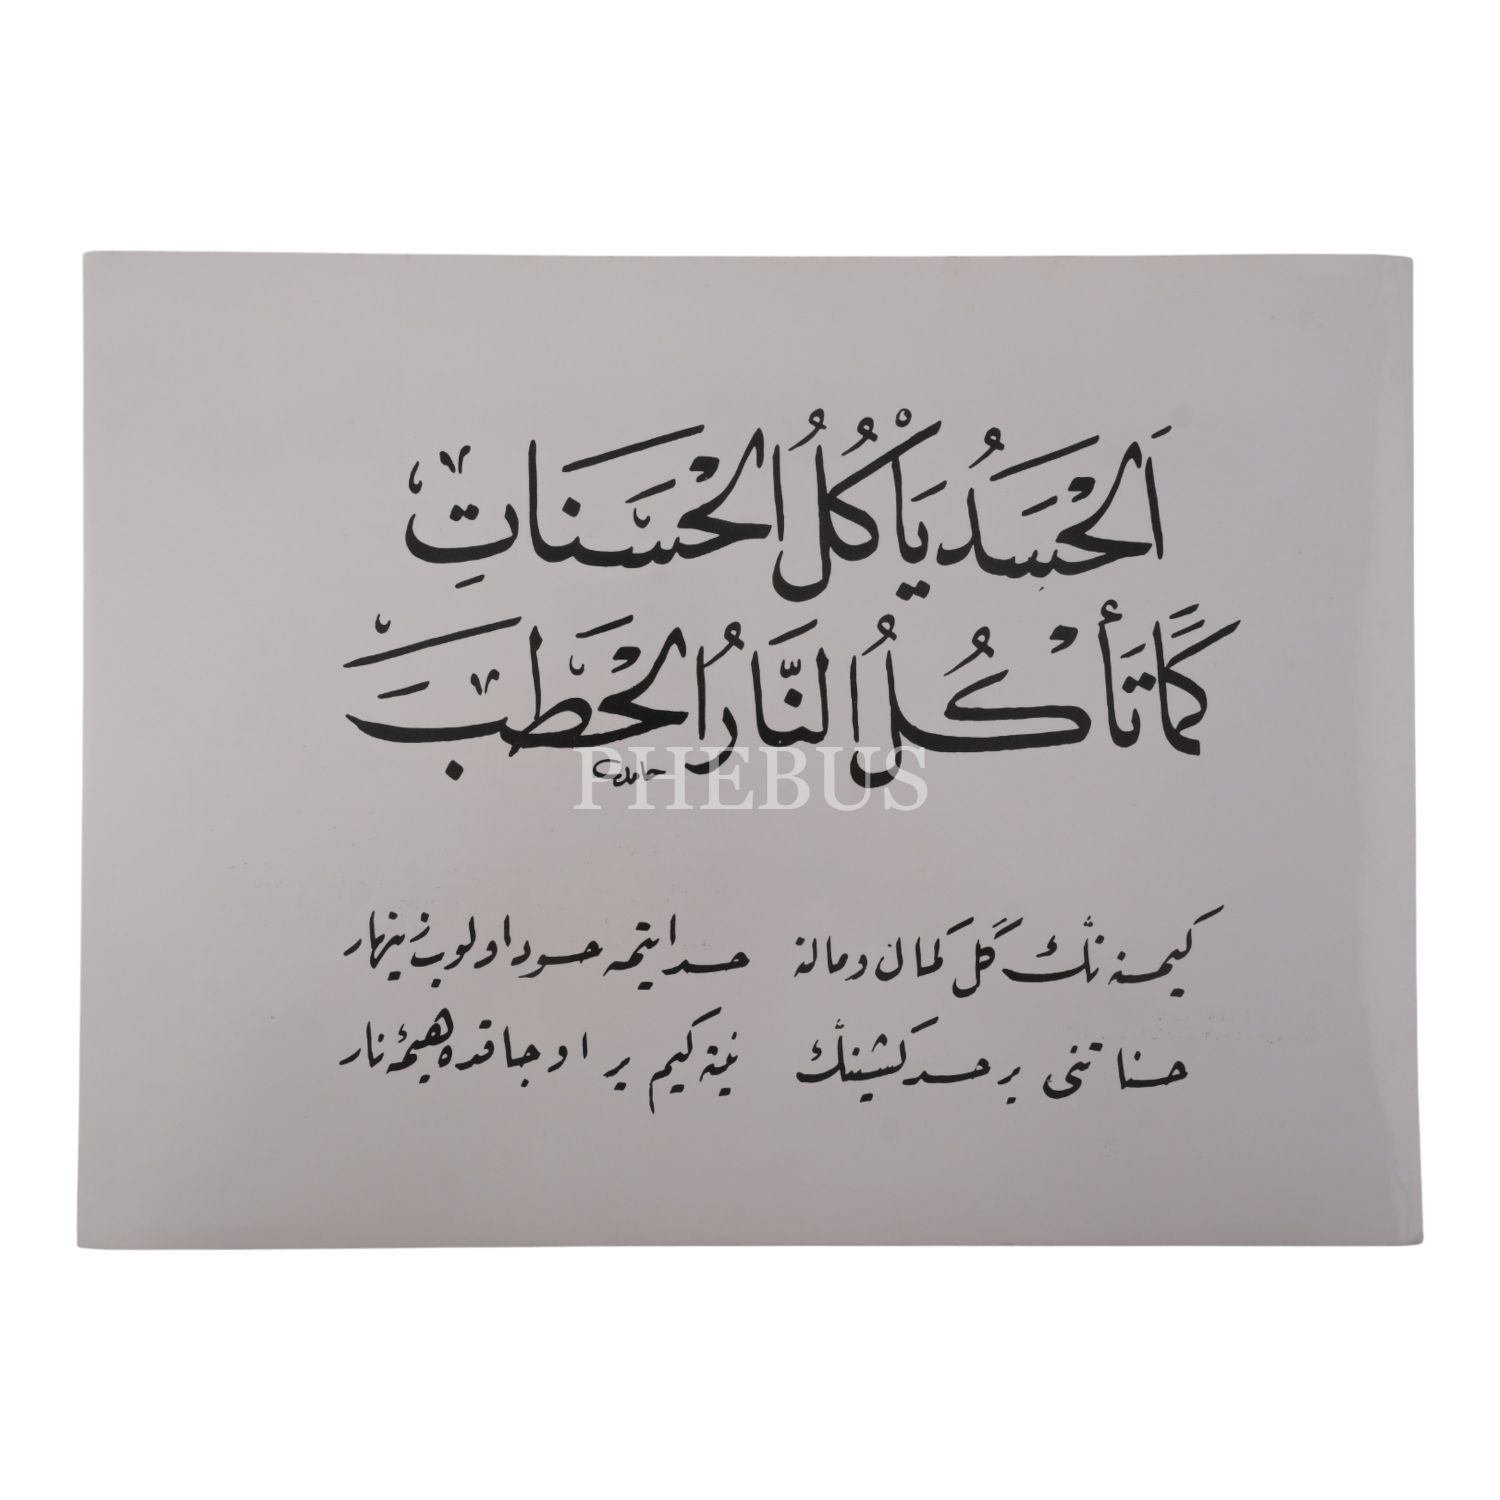 اَلْحَسَدُ يَأْكُلُ الْحَسَنَاتِ
كَمَا تَأْكُلُ النَّارُ الْحَطَبَ
حامد
PHEBUS
كیمسه نڭ گل كمال و مالنه حسد ایتمه حسود اولوب زینهار
حسناتنی بر حسد كشینڭ ینه كیم بر اوجاقده هیمۀ نار